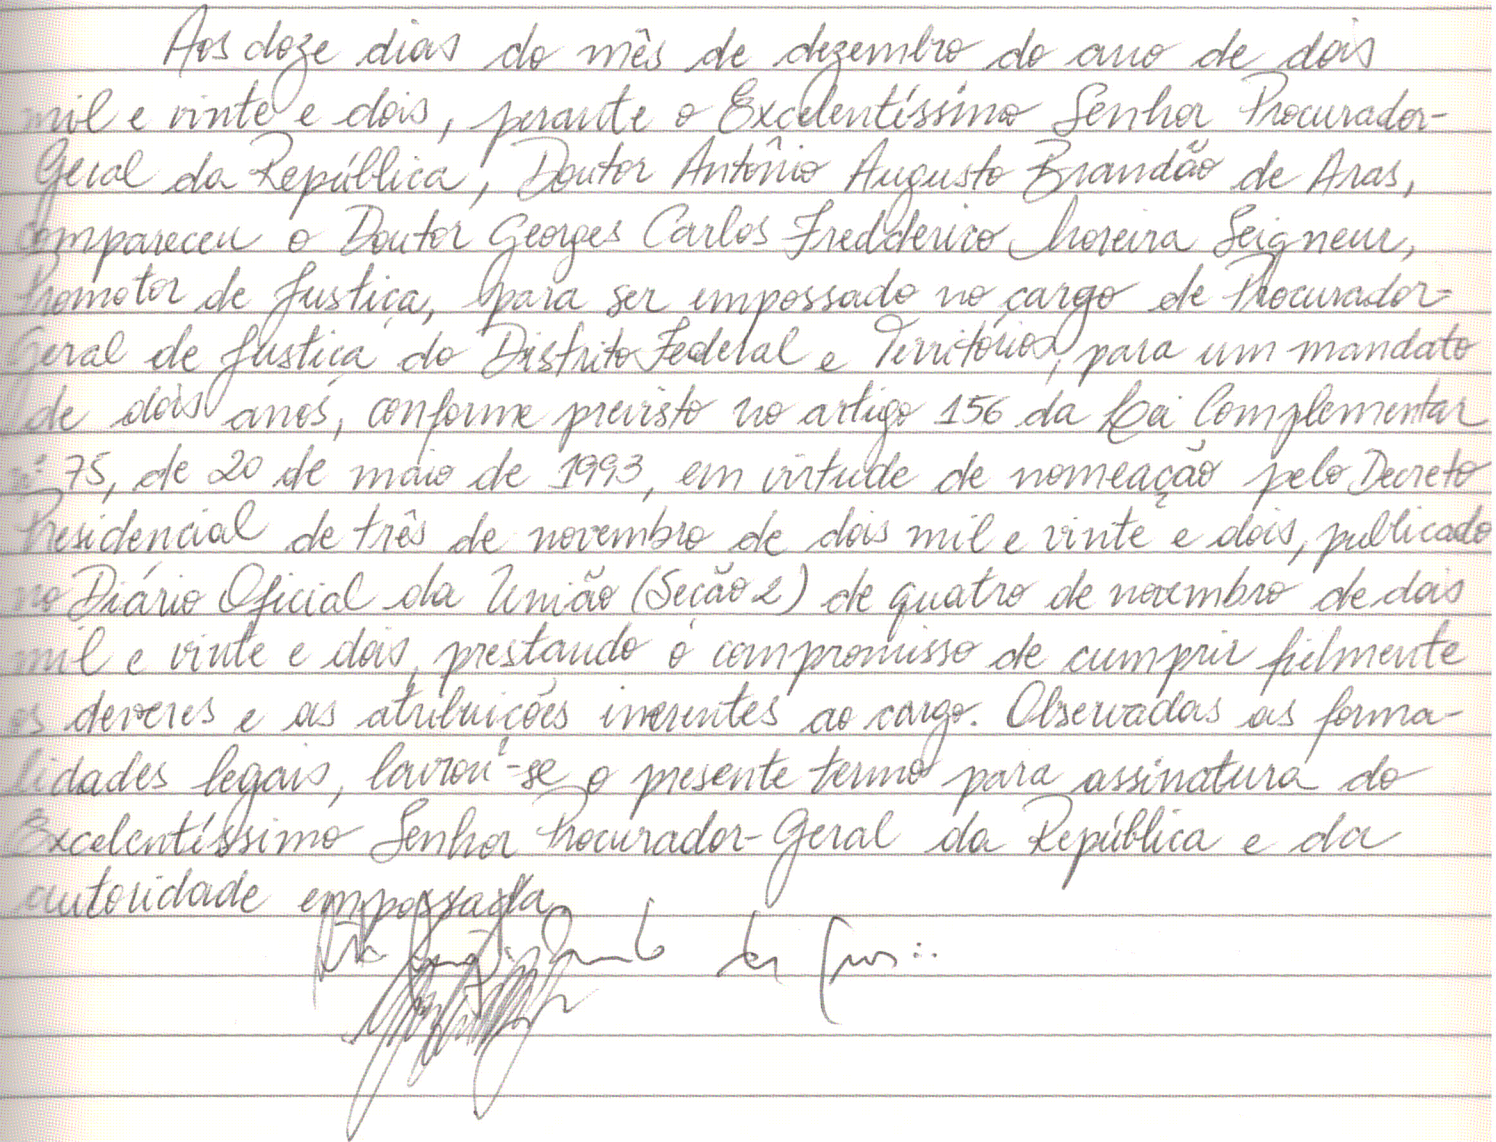 Aos doze dias do mês de dezembro do ano de dois
mil e vinte e dois, perante o Excelentíssimo Senhor Procurador-
Geral da República, Doutor Antônio Augusto Brandão de Aras,
compareceu o Doutor Georges Carlos Fredderico Moreira Seigneur,
Promotor de Justiça, para ser empossado no cargo de Procurador-
Geral de Justiça do Distrito Federal e Territórios, para um mandato
de dois anos, conforme previsto no artigo 156 da Lei Complementar
nº 75, de 20 de maio de 1993, em virtude de nomeação pelo Decreto
Presidencial de três de novembro de dois mil e vinte e dois, publicado
no Diário Oficial da União (Seção 2) de quatro de novembro de dois
mil e vinte e dois, prestando o compromisso de cumprir fielmente
os deveres e as atribuições inerentes ao cargo. Observadas as forma-
lidades legais, lavrou-se o presente termo para assinatura do
Excelentíssimo Senhor Procurador-Geral da República e da
autoridade empossada.